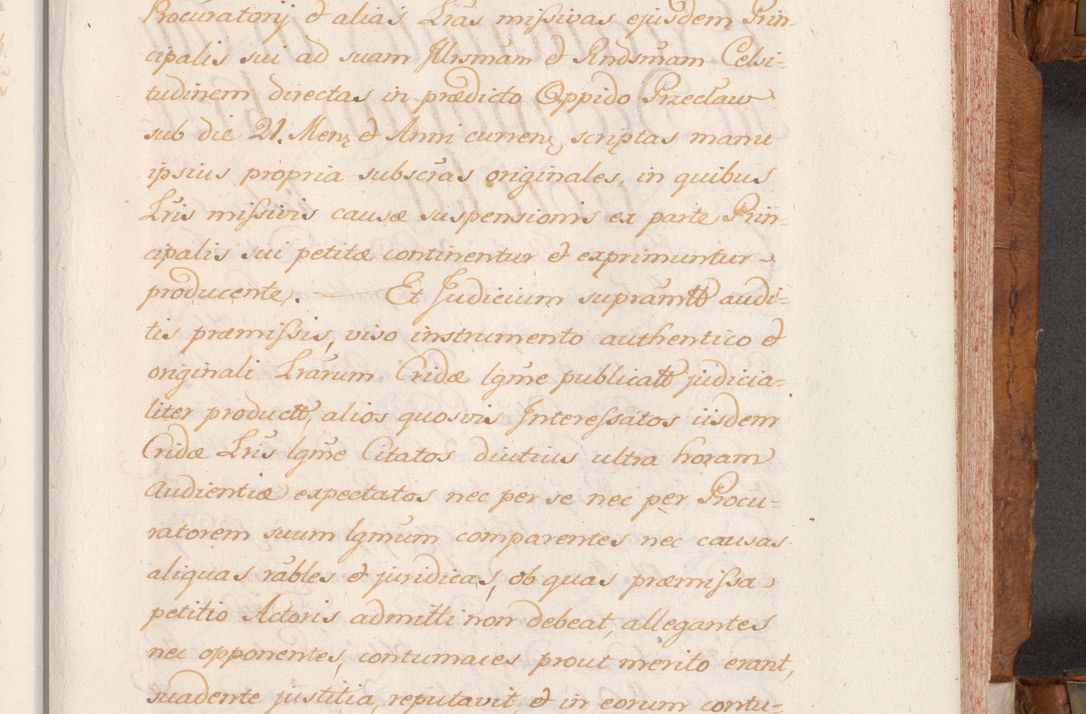 Procuratorij et alias Lras missivas ejusdem Prin
cipalis sui ad suam Illrsmam et Rndsmam Celsi-
tudinem directas in prædicto Oppido Przecław
sub die 21. Mens et Anni curren, scriptas manu
ipsius propria subscras originales, in quibus
Lris missivis causæ suspensionis ex parte Prin-
cipalis sui petitæ continentur et exprimuntur
producente. Et Judicium supramtt audi-
tis præmissis, viso instrumento authentico et
originali Lrarum Cridæ lgme publicatt judicia-
liter productt, alios quosvis Interessatos iisdem
Cridæ Lris lgme Citatos diutius ultra horam
Audientiæ expectatos nec per se nec per Procu-
ratorem suum lgmum comparentes nec causas
aliquas rables et juridicas, ob quas præmissa
petitio Actoris admitti non debeat, allegantes
nec opponentes, contumaces prout merito erant,
suadente justitia, reputavit, et in eorum contu-